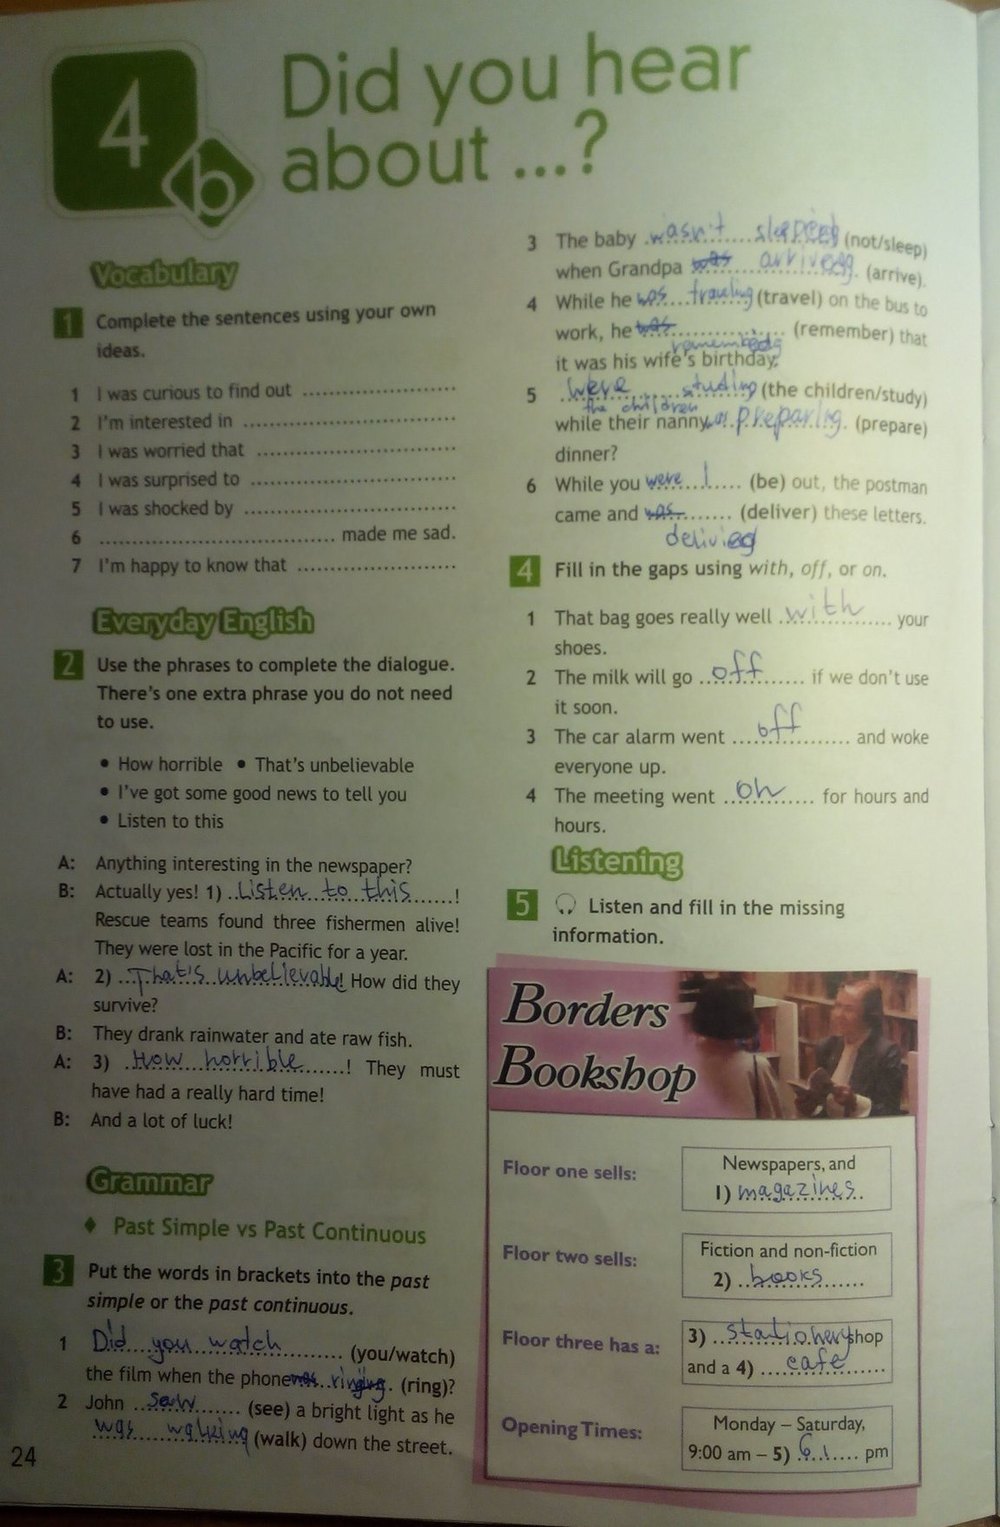 4b
Did you hear
about ...?
Vocabulary
1 Complete the sentences using your own
ideas.
1 I was curious to find out ........................
2 I'm interested in ........................
3 I was worried that ........................
4 I was surprised to ........................
5 I was shocked by ........................
6 ........................ made me sad.
7 I'm happy to know that ........................
Everyday English
2 Use the phrases to complete the dialogue.
There's one extra phrase you do not need
to use.
• How horrible • That's unbelievable
• I've got some good news to tell you
• Listen to this
A: Anything interesting in the newspaper?
B: Actually yes! 1) Listen to this !
Rescue teams found three fishermen alive!
They were lost in the Pacific for a year.
A: 2) That's unbelievable! How did they
survive?
B: They drank rainwater and ate raw fish.
A: 3) How horrible ! They must
have had a really hard time!
B: And a lot of luck!
Grammar
♦ Past Simple vs Past Continuous
3 Put the words in brackets into the past
simple or the past continuous.
1 Did you watch (you/watch)
the film when the phone was ringing. (ring)?
2 John saw (see) a bright light as he
was walking (walk) down the street.
24
3 The baby wasn't (not/sleep)
when Grandpa was (arrive).
4 While he was traveling (travel) on the bus to
work, he was (remember) that
it was his wife's birthday.
5 were studing (the children/study)
the children
while their nanny preparing. (prepare)
dinner?
6 While you were (be) out, the postman
came and was (deliver) these letters.
4 Fill in the gaps using with, off, or on.
1 That bag goes really well with your
shoes.
2 The milk will go off if we don't use
it soon.
3 The car alarm went off and woke
everyone up.
4 The meeting went on for hours and
hours.
Listening
5 Listen and fill in the missing
information.
Borders
Bookshop
Floor one sells:
Newspapers, and
1) magazines
Floor two sells:
Fiction and non-fiction
2) books
Floor three has a:
3) stationery shop
and a 4) cafe
Opening Times:
Monday – Saturday,
9:00 am – 5) 6 pm